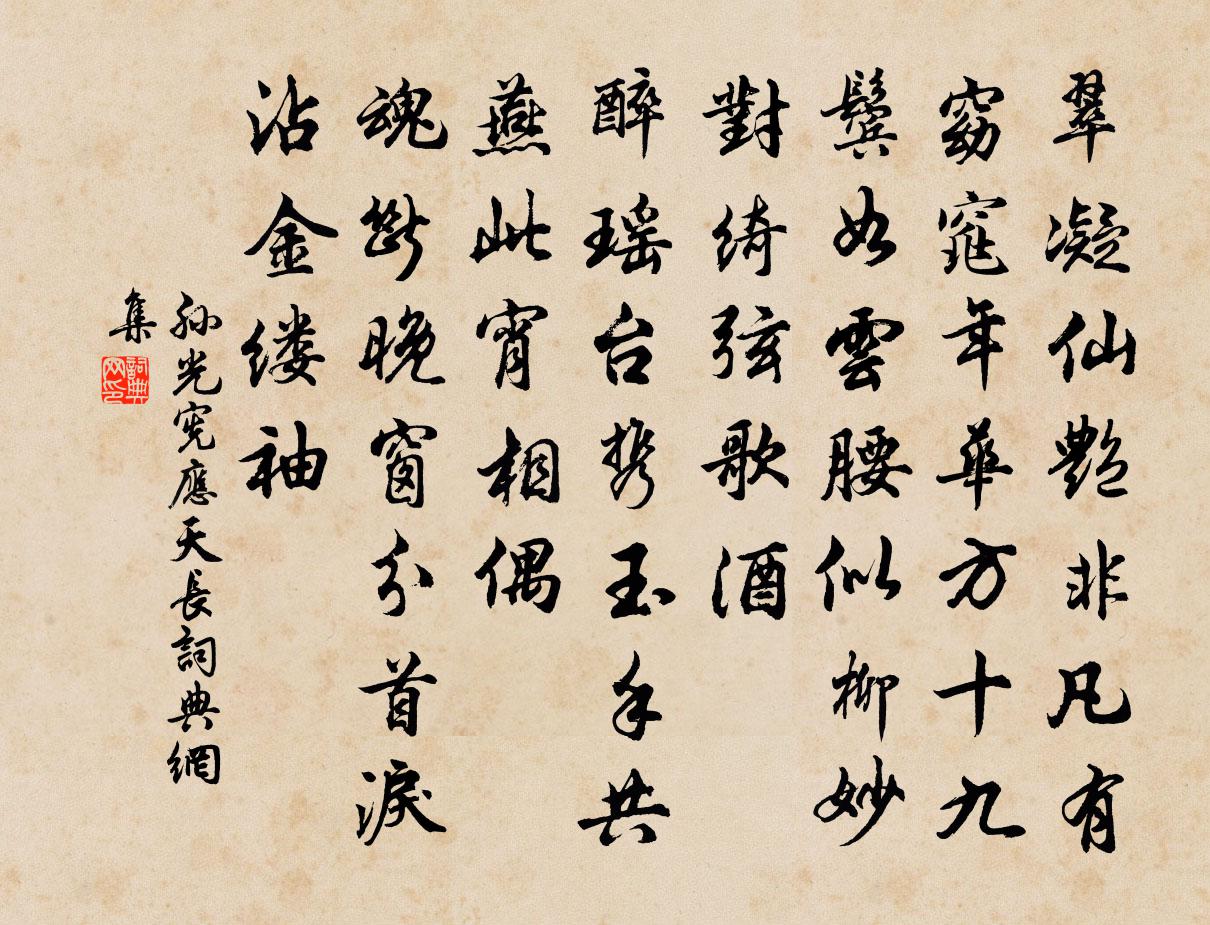 翠凝仙艷非凡有
窈窕年華方十九
鬢如雲腰似柳妙
對綺弦歌酒
醉瑶台携玉手共
燕此宵相偶
魂斷晚窗分首淚
沾金缕袖
孫光憲應天長詞典網
集
詞典网印